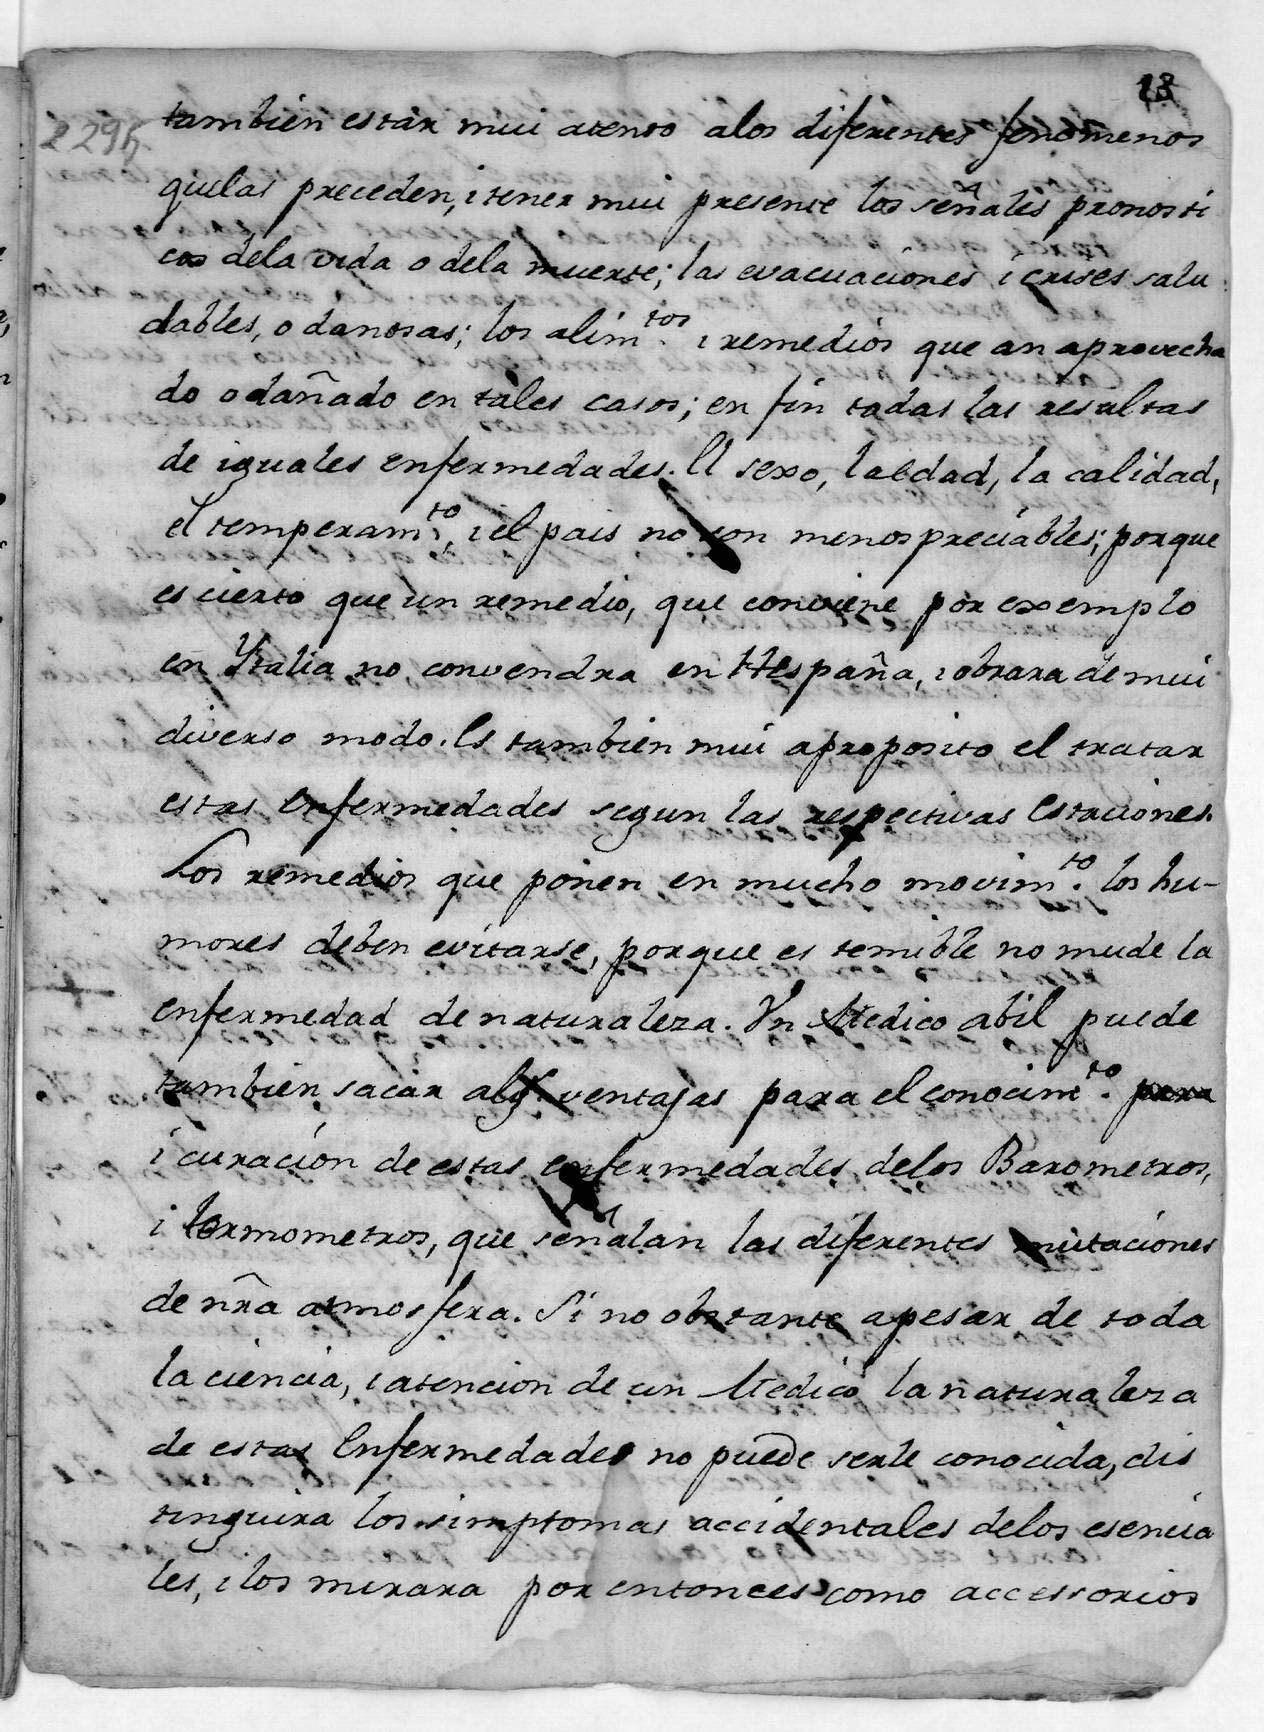 18
2295
también estàr mui atento alos diferentes fenomenos
quelas preceden, i tener mui presente los señales pronosti
cos dela vida o dela muerte; las evacuaciones i crises salu
dables, o danosas; los alim.tos i remedios que an aprovecha
do o dañado en tales casos; en fin todas las resultas
de iguales enfermedades. El sexo, la edad, la calidad,
el temperam.to, i el pais no son menospreciables; porque
es cierto que un remedio, que conviene por exemplo
en Ytalia no convendra en Hespaña, i obrara de mui
diverso modo. Es tambien mui aproposito el tratar
estas Enfermedades segun las respectivas Estaciones.
Los remedios que ponen en mucho movim.to los hu-
mores deben evitarse, porque es temible no mude la
enfermedad de naturaleza. Un Medico abil puede
tambien sacar alg.s ventajas para el conocim.to para
i curación de estas enfermedades delos Barometros,
i termometros, que señalan las diferentes mutaciones
de nr̃a atmosfera. Si no obstante apesar de toda
la ciencia, i atencion de un Medico la naturaleza
de estas Enfermedades no puede serle conocida, dis
tinguira los simptomas accidentales delos esencia
les, i los mirara por entonces como accessorios